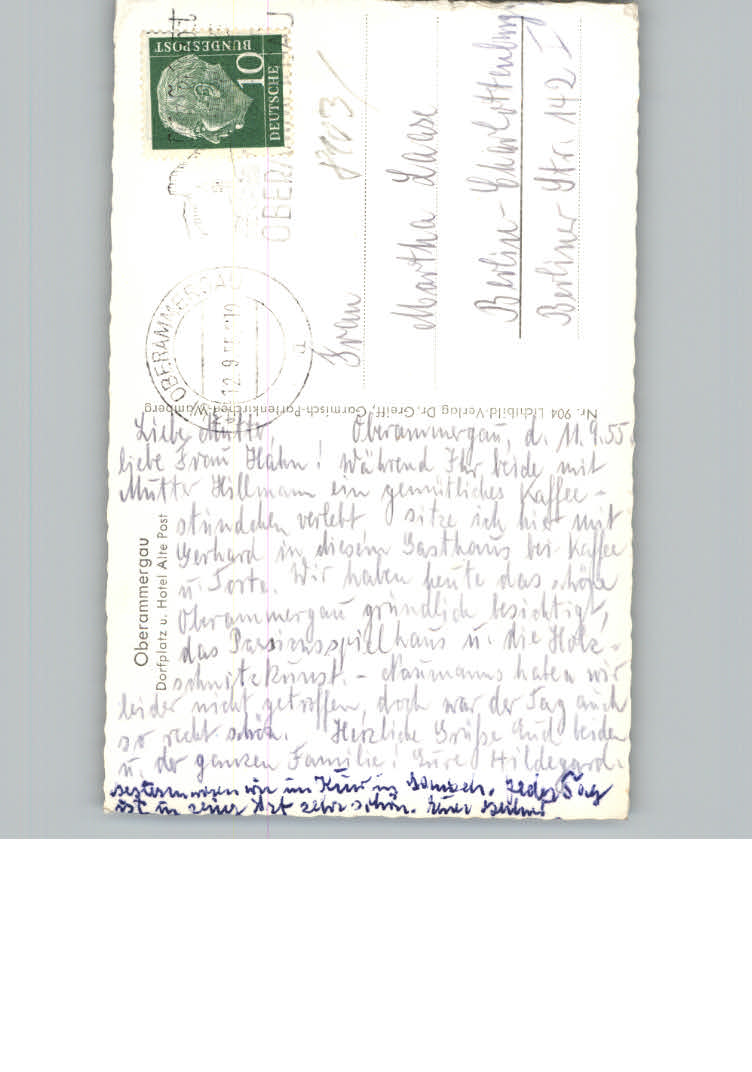 DEUTSCHE
BUNDESPOST
10
OBERAMMERGAU
12.9.55
a
Frau
Martha Laase
Berlin-Charlottenburg
Berliner Str. 142 I
Nr. 904 Lichtbild-Verlag Dr. Greiff, Garmisch-Partenkirchen-Wamberg
Oberammergau
Dorfplatz u. Hotel Alte Post
Liebe Mutter, Oberammergau, d. 11.9.55.
liebe Frau Hahn! Während Ihr beide mit
Mutter Hillmann ein gemütliches Kaffee-
stündchen verlebt, sitze ich hier mit
Gerhard in diesem Gasthaus bei Kaffee
u. Torte. Wir haben heute das schöne
Oberammergau gründlich besichtigt,
das Passionsspielhaus u. die Holz-
schnitzkunst. - Naumanns haben wir
leider nicht getroffen, doch war der Tag auch
so recht schön. Herzliche Grüße Euch beiden
u. der ganzen Familie! Eure Hildegard.
Gestern waren wir im Jeder Tag
ist in seiner Art sehr schön. Euer